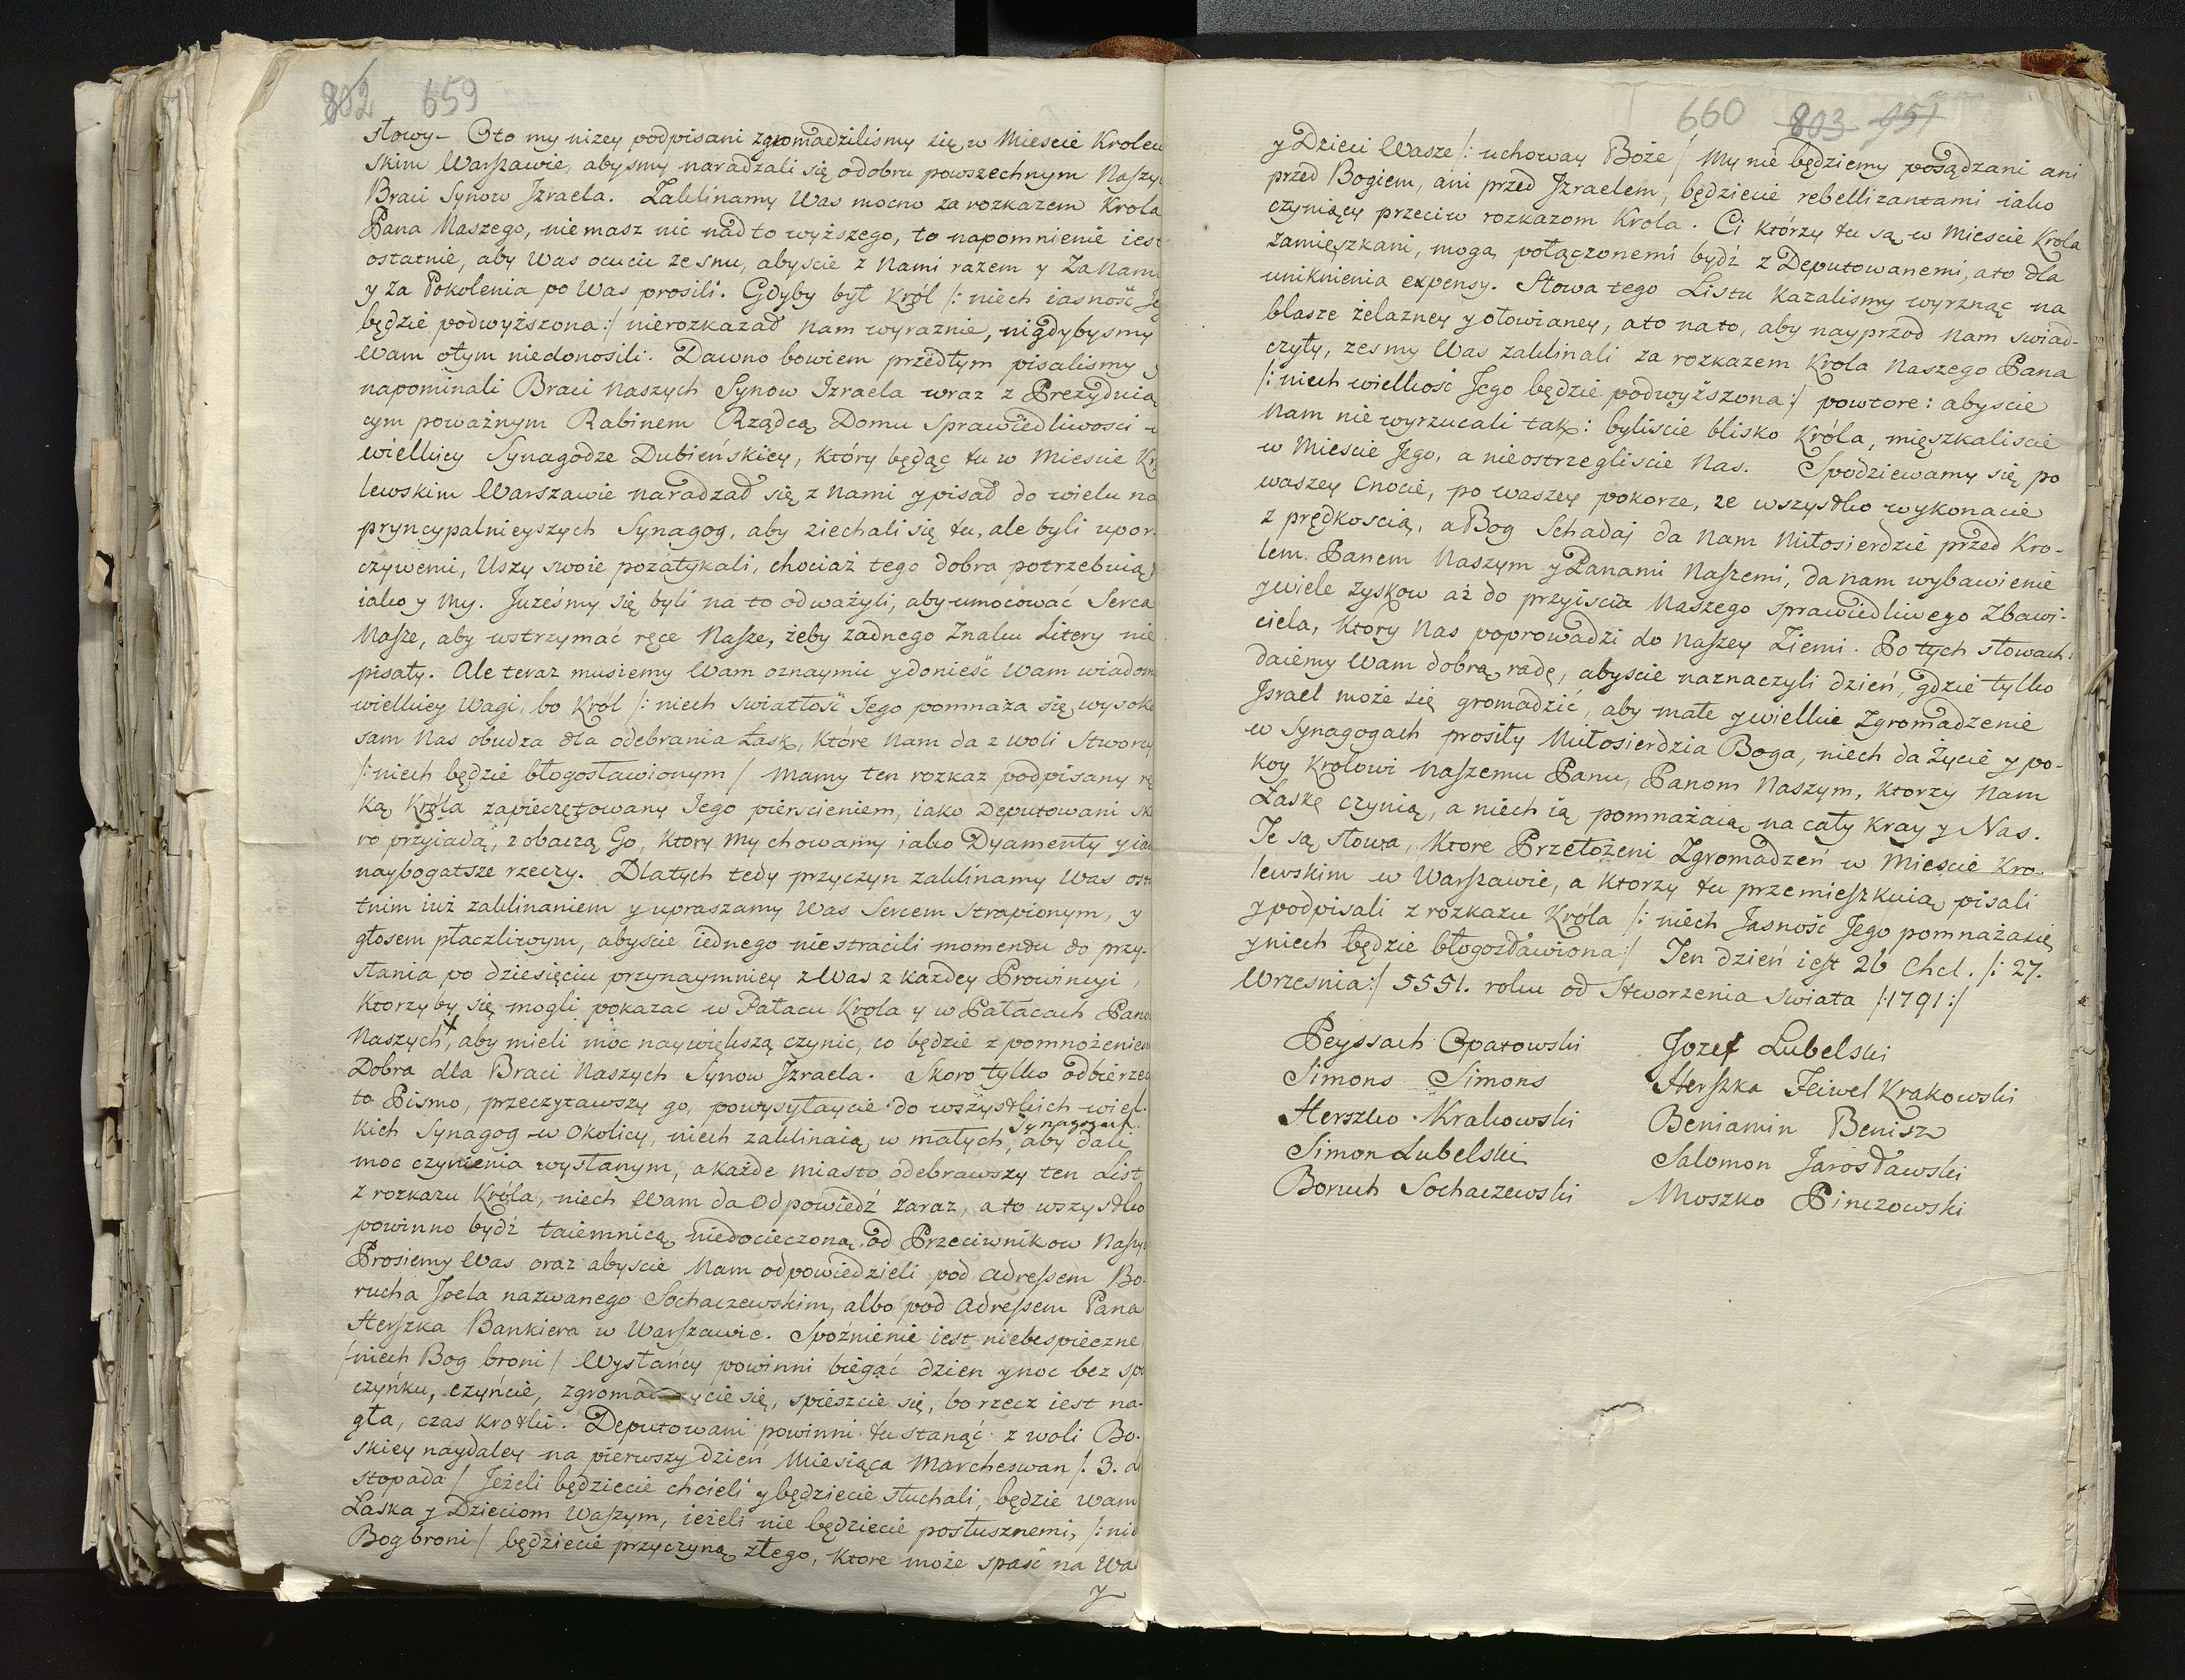 802 659
słowy – Oto my niżey podpisani zgromadzilismy się w Miescie Krolew
skim Warszawie, abysmy naradzali się o dobru powszechnym Naszy
Braci Synow Izraela. Zaklinamy Was mocno za rozkazem Krola
Pana Naszego, niemasz nic nad to wyższego, to napomnienie iest
ostatnie, aby Was ocucic ze snu, abyscie z Nami razem y za Nami
y za Pokolenia po Was prosili. Gdyby był Król /: niech iasność Je
będzie podwyższona :/ nierozkazał Nam wyraznie, nigdybysmy
Wam otym niedonosili. Dawno bowiem przedtym pisalismy y
napominali Braci Naszych Synow Izraela wraz z Prezyduią
cym poważnym Rabinem Rządcą Domu Sprawiedliwosci w
wielkiey Synagodze Dubieńskiey, który będąc tu w Miescie Kro
lewskim Warszawie naradzał się z nami y pisał do wielu na
pryncypalnieyszych Synagog, aby ziechali się tu, ale byli upor-
czywemi, Uszy swoie pozatykali, chociaż tego dobra potrzebuią
iako y My. Jużeśmy się byli na to odważyli, aby umocować Serca
Nasze, aby wstrzymać ręce Nasze, żeby żadnego Znaku Litery nie
pisały. Ale teraz musiemy Wam oznaymic y donieść Wam wiadom
wielkiey Wagi, bo Król /: niech swiatłość Jego pomnaża się wysoko
sam Nas obudza dla odebrania Łask, które Nam da z woli Stworcy
/: niech będzie błogosławionym / Mamy ten rozkaz podpisany rę
ką Króla zapieczętowany Jego pierscieniem, iako Deputowani sko
ro przyiadą, zobaczą Go, ktory My chowamy iako Dyamenty y iak
naybogatsze rzeczy. Dlatych tedy przyczyn zaklinamy Was osta
tnim iuż zaklinaniem y upraszamy Was Sercem strapionym, y
głosem płaczliwym, abyscie iednego niestracili momentu do przy-
słania po dziesięciu przynaymniey z Was z każdey Prowincyi,
Ktorzyby się mogli pokazac w Pałacu Krola y w Pałacach Pano
Naszych, aby mieli moc naywiększą czynic, co będzie z pomnożeniem
Dobra dla Braci Naszych Synow Izraela. Skoro tylko odbierzec
to Pismo, przeczytawszy go, powysyłaycie do wszystkich wiel-
kich Synagog w okolicy, niech zaklinaią w małych Synagogach, aby dali
moc czynienia wysłanym, a każde miasto odebrawszy ten List
z rozkazu Króla, niech Wam da Odpowiedź zaraz, a to wszystko
powinno bydź taiemnicą niedocieczoną od Przeciwnikow Naszy
Prosiemy Was oraz abyscie Nam odpowiedzieli pod Adressem Bo-
rucha Joela nazwanego Sochaczewskim, albo pod Adressem Pana
Herszka Bankiera w Warszawie. Spoźnienie iest niebespieczne
/niech Bog broni/ Wysłańcy powinni biegać dzien y noc bez spo
czyńku, czyńcie, zgromadzaycie się, spieszcie się, bo rzecz iest na-
gła, czas krotki. Deputowani powinni tu stanąć z woli Bo-
skiey naydaley na pierwszy dzień Miesiąca Marcheswan /. 3. d
stopada / Jeżeli będziecie chcieli y będziecie słuchali, będzie Wam
Łaska y Dzieciom Waszym, ieżeli nie będziecie posłusznemi, /: nie
Bog broni / będziecie przyczyną złego, ktore może spaść na Wa
y
660 803 951
y Dzieci Wasze /: uchoway Boże / My nie będziemy posądzani ani
przed Bogiem, ani przed Izraelem, będziecie rebellizantami iako
czyniący przeciw rozkazom Krola. Ci którzy tu są w Miescie Krola
zamięszkani, mogą połączonemi bydź z Deputowanemi, a to dla
uniknienia expensy. Słowa tego Listu kazalismy wyrznąc na
blasze żelazney y ołowianey, a to na to, aby nayprzod Nam swiad-
czyły, zesmy Was zaklinali za rozkazem Krola Naszego Pana
/: niech wielkość Jego będzie podwyższona :/ powtore: abyscie
Nam nie wyrzucali tak: byliscie blisko Króla, mięszkaliscie
w Miescie Jego, a nieostrzegliscie Nas. Spodziewamy się po
waszey Cnocie, po waszey pokorze, że wszystko wykonacie
z prędkoscią, a Bog Schadaj da Nam Miłosierdzie przed Kro-
lem. Panem Naszym y Panami Naszemi, da nam wybawienie
y wiele zyskow aż do przyiscia Naszego sprawiedliwego Zbawi-
ciela, ktory Nas poprowadzi do Naszey Ziemi. Po tych słowach
daiemy Wam dobrą radę, abyscie naznaczyli dzień, gdzie tylko
Israel może się gromadzić, aby małe y wielkie Zgromadzenie
w Synagogach prosiły Miłosierdzia Boga, niech da Życie y po-
koy Krolowi Naszemu Panu, Panom Naszym, ktorzy Nam
Łaskę czynią, a niech ią pomnażaią na cały Kray y Nas.
Te są słowa, ktore Przełożeni Zgromadzeń w Miescie Kro-
lewskim w Warszawie, a ktorzy tu przemieszkuią pisali
y podpisali z rozkazu Króla /: niech Jasność Jego pomnaża się
y niech będzie błogosławiona :/ Ten dzień iest 26 Chel. /: 27.
Wrzesnia :/ 5551. roku od Stworzenia Swiata /: 1791 :/
Peyssach Opatowski Jozef Lubelski
Simons Simons Herszka Feiwel Krakowski
Herszko Krakowski Beniamin Benisz
Simon Lubelski Salomon Jarosławski
Boruch Sochaczewski Moszko Pinczowski